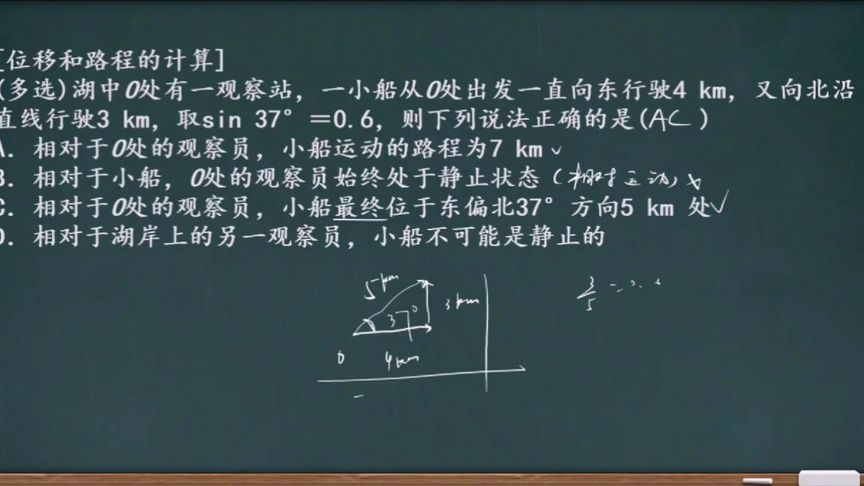 [位移和路程的计算]
(多选)湖中O处有一观察站，一小船从O处出发一直向东行驶4 km，又向北沿
直线行驶3 km，取sin 37°＝0.6，则下列说法正确的是(AC)
A．相对于O处的观察员，小船运动的路程为7 km ✓
B．相对于小船，O处的观察员始终处于静止状态（相对运动 ×
C．相对于O处的观察员，小船最终位于东偏北37°方向5 km 处✓
D．相对于湖岸上的另一观察员，小船不可能是静止的
5 km
3 km
37°
0
4 km
3/5 = 0.6